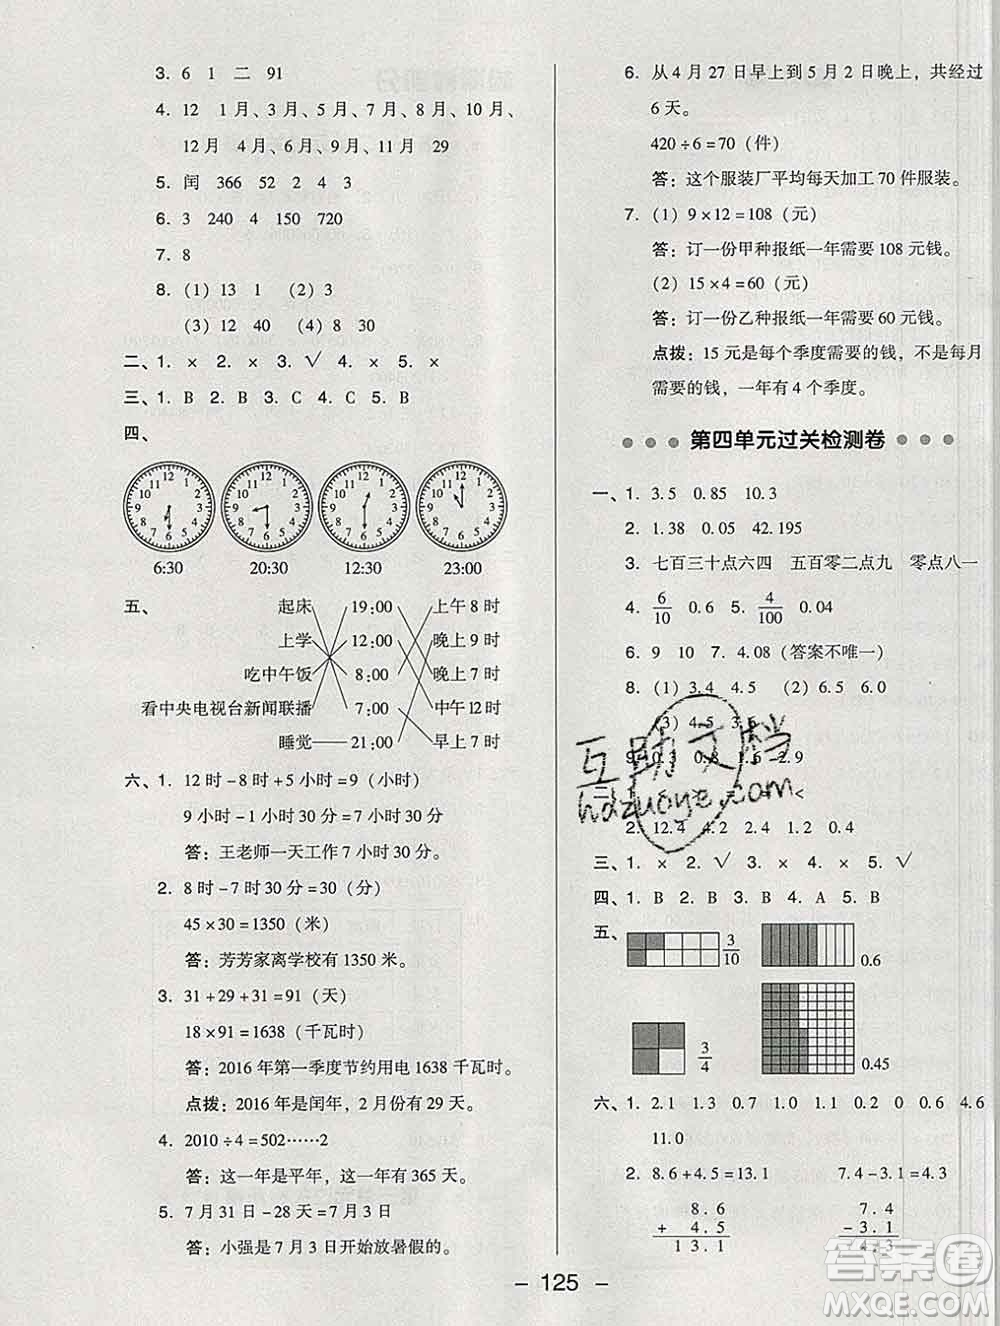 3. 6 1 二 91
4. 12 1月、3月、5月、7月、8月、10月、
12月 4月、6月、9月、11月 29
5. 闰 366 52 2 4 3
6. 3 240 4 150 720
7. 8
8. (1) 13 1 (2) 3
(3) 12 40 (4) 8 30
二、1. × 2. × 3. √ 4. × 5. ×
三、1. B 2. B 3. C 4. C 5. B
四、
6:30 20:30 12:30 23:00
五、
起床 19:00 上午8时
上学 12:00 晚上9时
吃中午饭 8:00 晚上7时
看中央电视台新闻联播 7:00 中午12时
睡觉 21:00 早上7时
六、1. 12时-8时+5小时=9(小时)
9小时-1小时30分=7小时30分
答：王老师一天工作7小时30分。
2. 8时-7时30分=30(分)
45×30=1350(米)
答：芳芳家离学校有1350米。
3. 31+29+31=91(天)
18×91=1638(千瓦时)
答：2016年第一季度节约用电1638千瓦时。
点拨：2016年是闰年，2月份有29天。
4. 2010÷4=502……2
答：这一年是平年，这一年有365天。
5. 7月31日-28天=7月3日
答：小强是7月3日开始放暑假的。
6. 从4月27日早上到5月2日晚上，共经过
6天。
420÷6=70(件)
答：这个服装厂平均每天加工70件服装。
7. (1) 9×12=108(元)
答：订一份甲种报纸一年需要108元钱。
(2) 15×4=60(元)
答：订一份乙种报纸一年需要60元钱。
点拨：15元是每个季度需要的钱，不是每月
需要的钱，一年有4个季度。
第四单元过关检测卷
一、1. 3.5 0.85 10.3
2. 1.38 0.05 42.195
3. 七百三十点六四 五百零二点九 零点八一
4. 6/10 0.6 5. 4/100 0.04
6. 9 10 7. 4.08(答案不唯一)
8. (1) 3.4 4.5 (2) 6.5 6.0
(3) 4.5
9. 0.3 0.8 1.6 2.9
二、1. <
2. 12.4 4.2 2.4 1.2 0.4
三、1. × 2. √ 3. × 4. × 5. √
四、1. B 2. B 3. B 4. A 5. B
五、
3/10 0.6
3/4 0.45
六、1. 2.1 1.3 0.7 1.0 1.1 0.2 0 0.6 4.6
11.0
2. 8.6+4.5=13.1 7.4-3.1=4.3
8.6 7.4
+ 4.5 - 3.1
13.1 4.3
- 125 -
互助文档
hdzuoye.com
答案圈
MXQE.COM